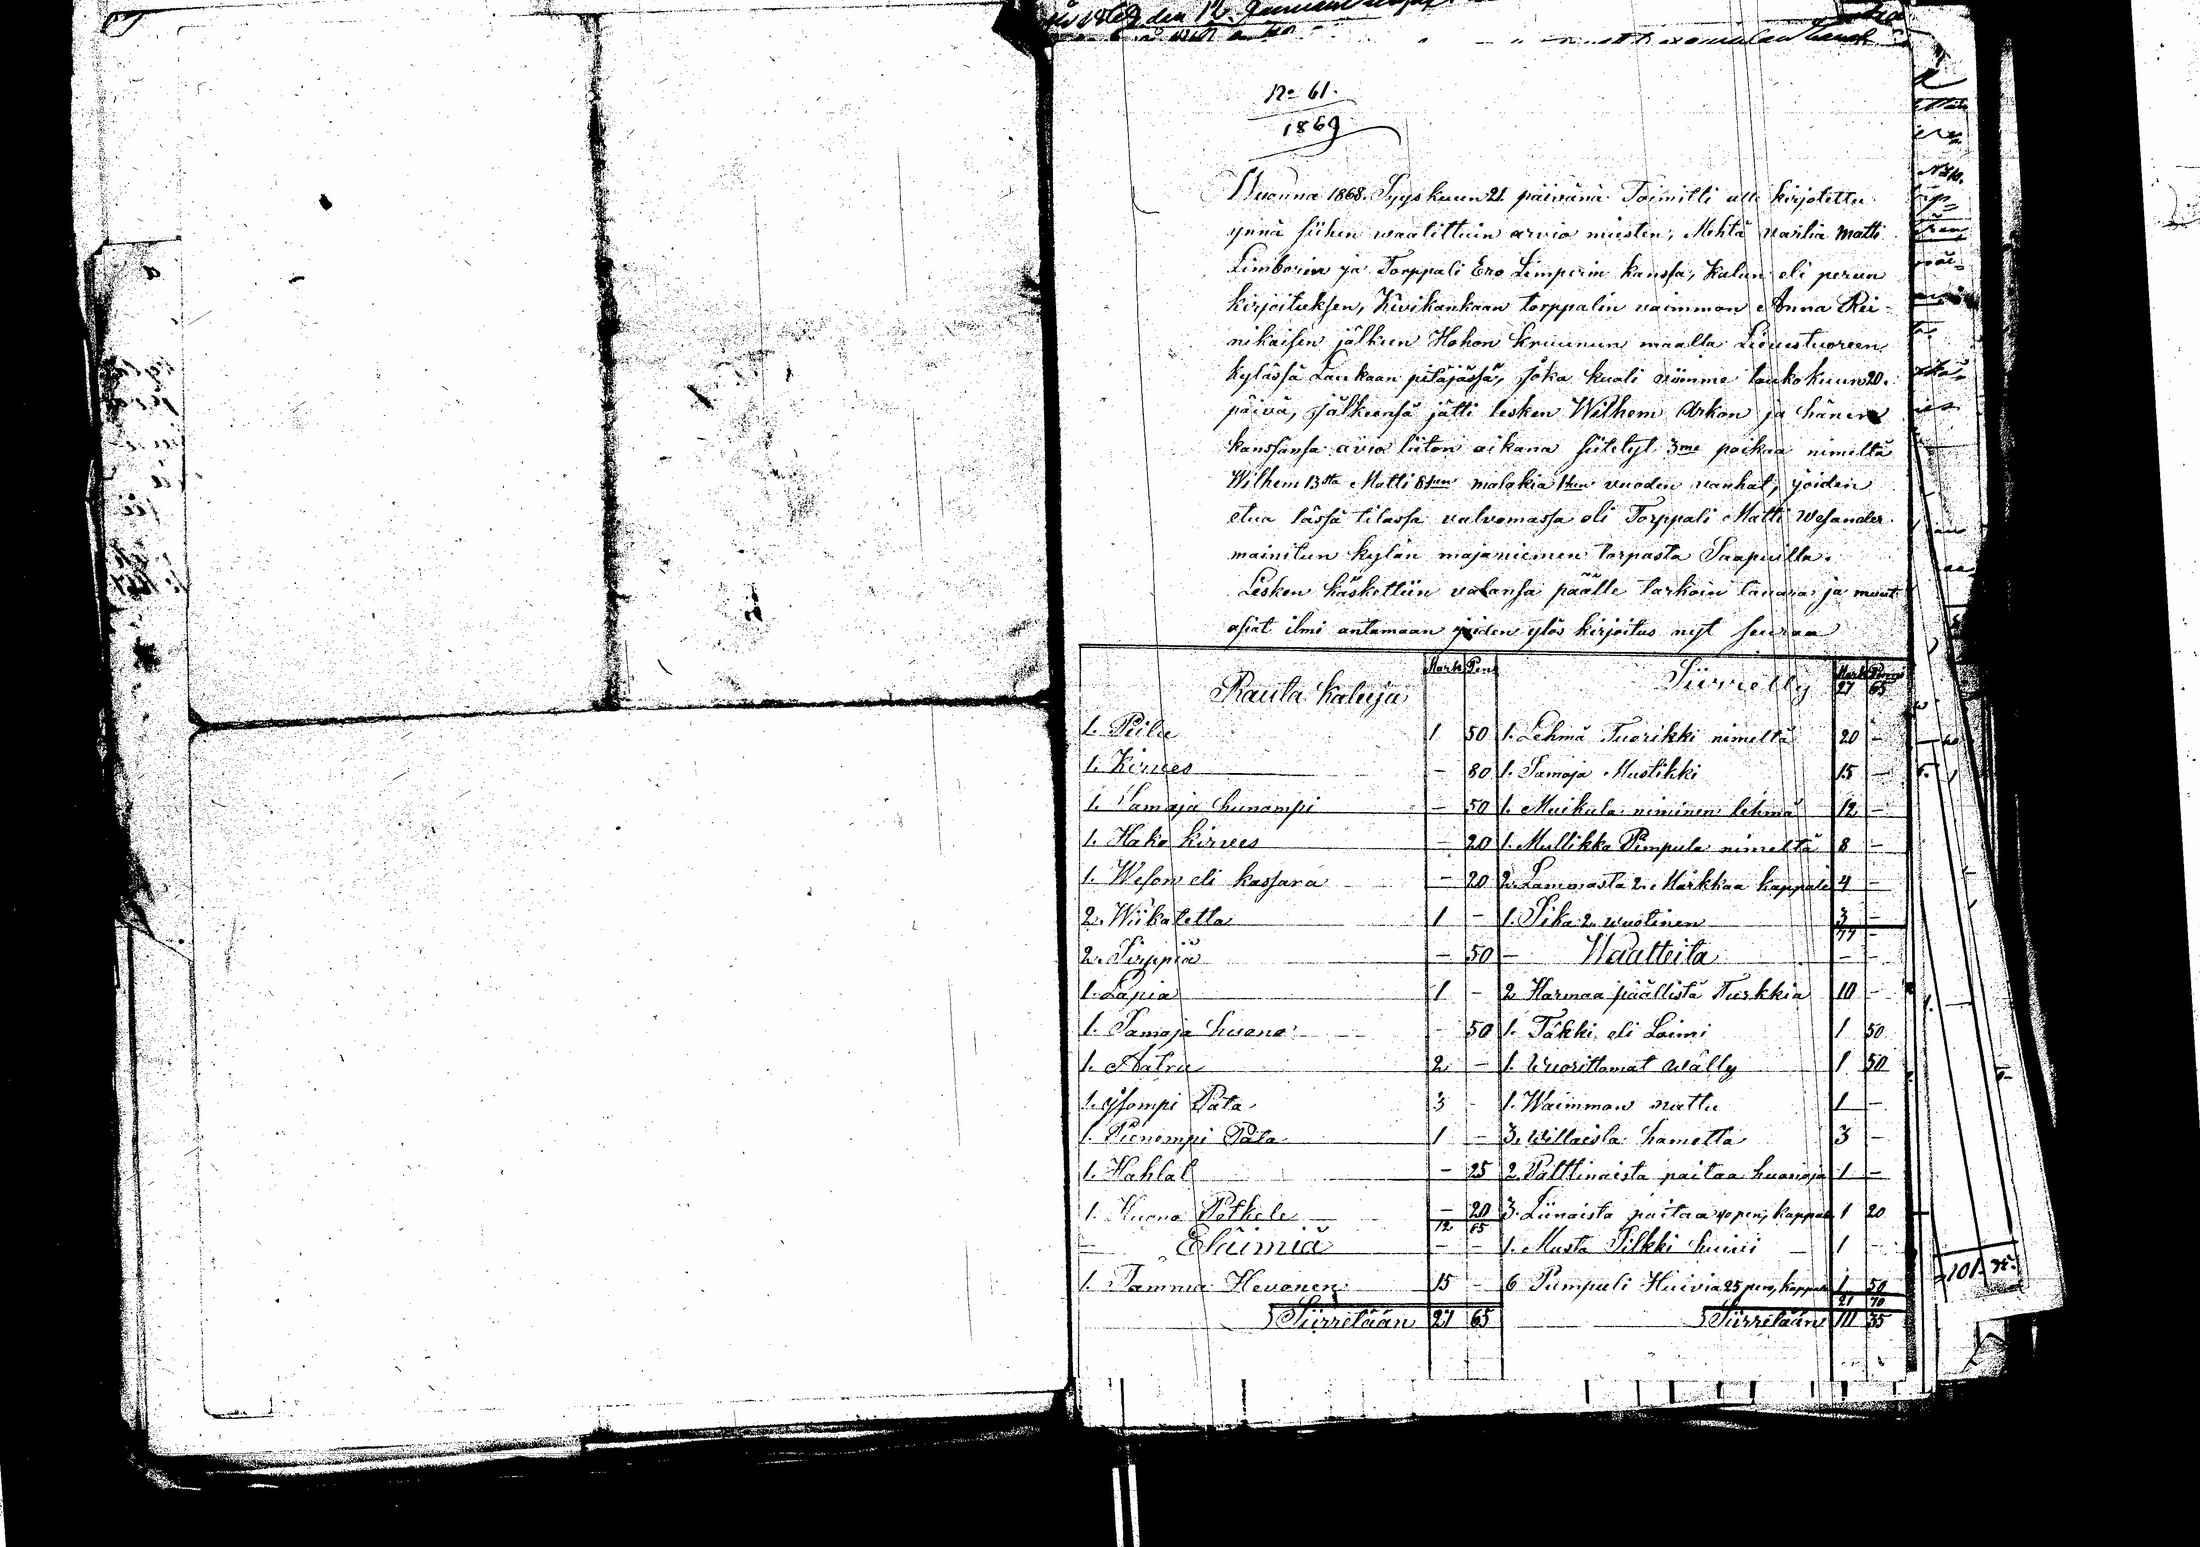 No 61.
1869
Wuonna 1868. Syyskuun 21 päivänä Toimitti alle kirjotettu
ynnä siihen waalittuin arvio miesten, Mehtä vartia Matti
Limborin ja Torppali Ero Limperin kanssa, Kalun eli perun
kirjoituksen, Kivikankaan torppalin vaimmon Anna Rei-
nikaisen jälkeen Hohon kruunun maalla Lievestuoreen
kylässä Laukaan pitäjässä, joka kuoli viimme toukokuun 20.
päivä, jälkeensä jätti lesken Wilhem Arkon ja hänen
kanssansa avio liiton aikana siitetyt 3me poikaa nimiltä
Wilhem 13sta Matti 8san malakia 1hen vuoden vanhat, joiden
etua tässä tilassa valvomassa oli Torppali Matti Wesander
mainitun kylän majaniemen torpasta Saapuilla.
Lesken käskettiin valansa päälle tarkoin tavara ja muut
asiat ilmi antamaan joiden ylös kirjoitus nyt seuraa
Rauta kaluja Mark Pen Siirretty Mark Penni 27 65
1. Piilu 1 50 1. Lehmä Tuorikki nimeltä 20 -
1. Kirves - 80 1. Samaja Mustikki 15 -
1. Samaja hunompi - 50 1. Muikula niminen lehmä 12 -
1. Hako kirves - 20 1. Mullikka Pimpula nimeltä 8 -
1. Weson eli kassara - 20 2. Lammasta 2. Markkaa kappale 4 -
2. Wiikatetta 1 - 1. Sika 2. wuotinen 3 -
2. Sirppiä - 50 - Waatteita - -
1. Lapia 1 - 2 Harmaa päällistä Turkkia 10 -
1. Samaja huono - 50 1. Täkki eli Loimi 1 50
1. Aatra 2 - 1. Wuorittamat wälly 1 50
1. Isompi Pata 3 - 1. Waimmon nuttu 1 -
1. Pienempi Pata 1 - 3. willaista hametta 3 -
1. Hahlat - 25 2. Palttinaista paitaa huonoja 1 -
1. Huono Petkele - 20 3. Liinaista paitaa 40 pen, kappale 1 20
12 65
- Eläimiä - - 1. Musta Silkki huivi - 1 -
1. Tamma Hevonen 15 - 6 Pumpuli Huivia 25 pen, kappale 1 50
21 70
Siirretään 27 65 Siirretään 111 35
101 35.